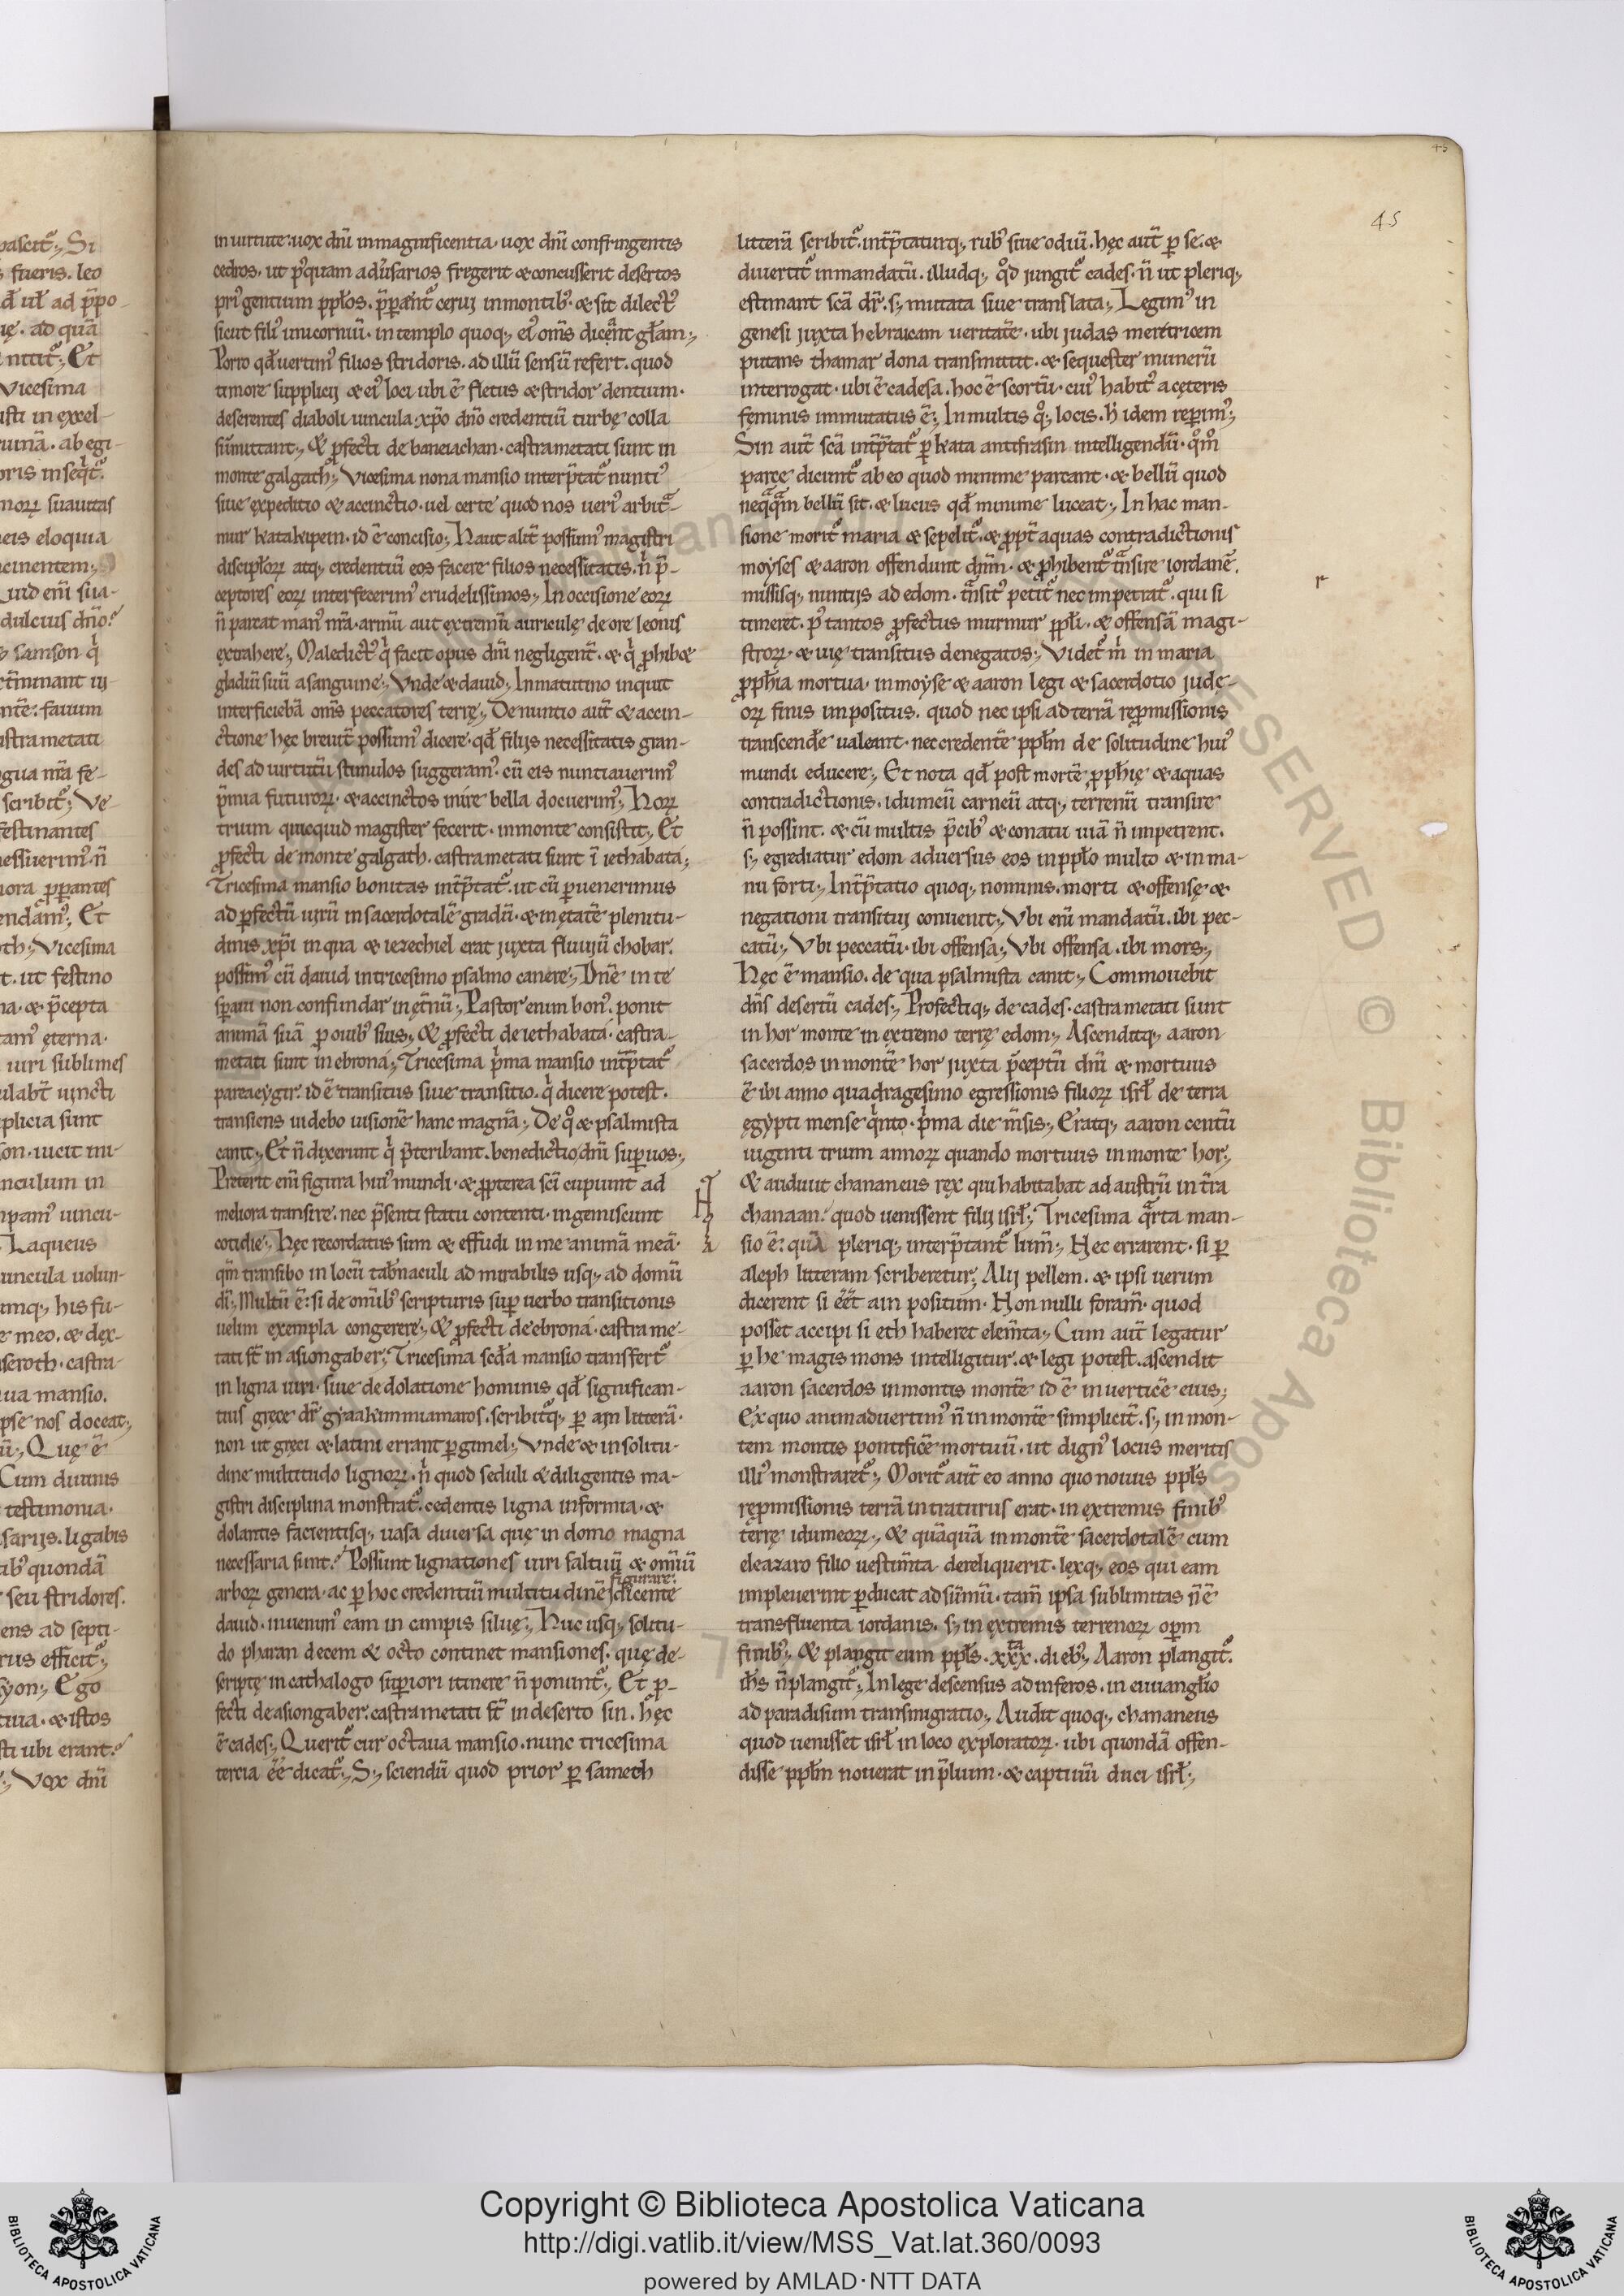 45
45
in uirtute: uox dñi in magnificentia. uox dñi confringentis
cedros. ut p'quam aduͥsarios fregerit & concusserit desertos
pri' gentium ppl̃os. p̃parent᷑ cerui in montib'. & sit dilect'
sicut fili' unicornuũ. in templo quoq; ei' om̃s dicent gl̃am;
Porro qđ uertim' filios stridoris. ad illũ sensũ refert. quod
timore supplicij & ei' loci ubi ẽ fletus & stridor dentium.
deserentes diaboli uincula: xp̃o dño credentiũ turbę colla
sũmittant; & ꝓfecti de baneiachan. castra metati sunt in
monte galgath; Vicesima nona mansio interp̃tat᷑ nunti'
siue expeditio & accinctio. uel certe quod nos ueri' arbitra-
mur katakipein. id ẽ concisio; Haut alit̃ possum' magistri
discipl̃oꝝ atq; credentiũ eos facere filios necessitatis. ni p̃-
ceptores eoꝝ interfecerim' crudelissimos; In occisione eoꝝ
ñ parcat man' nr̃a. armũ aut extremũ auriculę de ore leonis
extrahere; Maledict' qi facit opus dñi negligent̃. & qi ꝓhib&
gladiũ suũ a sanguine; Vnde & dauid; In matutino inquit
interficiebã om̃s peccatores terrę; De nuntio aut̃ & accin-
ctione hęc breuit̃ possum' dicere. qđ filijs necessitatis gran-
des ad uirtutũ stimulos suggeram'. cũ eis nuntiauerim'
p̃mia futuroꝝ. & accinctos inire bella docuerim'; Hoꝝ
trium quicquid magister fecerit. in monte consistit; Et
ꝓfecti de monte galgath. castra metati sunt ĩ iethabata;
Tricesima mansio bonitas int̃p̃tat᷑. ut cũ ꝑuenerimus
ad ꝑfectũ uirũ in sacerdotalẽ gradũ. & in ętatẽ plenitu-
dinis xp̃i in qua & iezechiel erat juxta fluuiũ chobar.
possim' cũ dauid in tricesimo psalmo canere; Dñe in te
speraui non confundar in ęt̃nũ; Pastor enim bon'. ponit
animã suã ꝓ ouib' suis; & ꝓfecti de iethabata. castra-
metati sunt in ebrona; Tricesima pͥma mansio int̃p̃tat᷑
paraeygir. id ẽ transitus siue transitio. qi dicere potest.
transiens uidebo uisionẽ hanc magnã; De qo & psalmista
canit; Et ñ dixerunt qi p̃teribant. benedictio dñi suꝑ uos;
Preterit eni figura hui' mundi. & ꝓpterea sc̃i cupiunt ad
meliora transire. nec p̃senti statu contenti. ingemiscunt
cotidie; Hęc recordatus sum & effudi in me animã meã.
qm̃ transibo in locũ tab̃naculi admirabilis usq; ad domũ
di; Multũ ẽ: si de om̃ib' scripturis suꝑ uerbo transitionis
uelim exempla congerere; & ꝓfecti de ebrona. castra me-
tati st̃ in asiongaber; Tricesima scđa mansio transfert᷑
in ligna uiri. siue dedolatione hominis qđ significan-
tius gręce dr̃ gyaakimmamaros. scribit᷑q; ꝑ ain litterã.
non ut gręci & latini errant ꝑ gimel; Vnde & in solitu-
dine multitudo lignoꝝ. ni quod seduli & diligentis ma-
gistri disciplina monstrat᷑. cedentis ligna informia. &
dolantis facientisq; uasa diuersa que in domo magna
necessaria sunt. Possunt lignationes uiri saltuũ & om̃iũ
figurare.
arboꝝ genera. ac ꝑ hoc credentiũ multitudinẽ dicente
dauid. inuenim' eam in campis siluę; Huc usq; solitu-
do pharan decem & octo continet mansiones. quę de-
scriptę in cathalogo suꝑiori itinere ñ ponunt᷑; Et ꝓ-
fecti de asiongaber. castra metati st̃ in deserto sin. hęc
ẽ cades; Querit᷑ cur octaua mansio. nunc tricesima
tercia ẽẽ dicat᷑; S; sciendũ quod prior ꝑ samech
litterã scribit᷑. int̃p̃taturq; rub' siue odiũ. hęc aut̃ ꝑ se. &
diuertit᷑ in mandatũ. illudq; qđ jungit᷑ cades. ñ ut pleriq;
estimant sc̃a dr̃. s; mutata siue translata; Legim' in
genesi juxta hebraicam ueritatẽ. ubi judas meretricem
putans thamar dona transmittit. & sequester munerũ
interrogat. ubi ẽ cadesa. hoc ẽ scortũ. cui' habit' a cęteris
feminis immutatus ẽ; In multis qoq; locis. h idem repperim';
Sin aut̃ sc̃a int̃p̃tat᷑ ꝑ kata antifrasin intelligendũ. qomo
parcę dicunt᷑ ab eo quod minime parcant. & bellũ quod
neqaqam bellũ sit. & lucus qđ minime luceat; In hac man-
sione morit᷑ maria & sepelit᷑. & ꝓpt̃ aquas contradictionis
moyses & aaron offendunt dñm. & ꝓhibent᷑ transire iordanẽ.
missisq; nuntijs ad edom. transit' petit᷑ nec impetrat᷑. qui si
timeret. p' tantos ꝓfectus murmur ppl̃i. & offensã magi-
stroꝝ. & uię transitus denegatos; Videt᷑ mi in maria
ꝓphia mortua. in moyse & aaron legi & sacerdotio judę-
oꝝ finis impositus. quod nec ipsi ad terrã repmissionis
transcendere ualeant. nec credentẽ ppl̃m de solitudine hui'
mundi educere; Et nota qđ post mortẽ ꝓphię & aquas
contradictionis. idumeũ carneũ atq; terrenũ transire
ñ possint. & cũ multis p̃cib' & conatu uiã ñ impetrent.
s; egrediatur edom aduersus eos in ppl̃o multo & in ma-
nu forti; Int̃p̃tatio quoq; nominis. morti & offensę &
negationi transitui conuenit; Vbi eni mandatũ. ibi pec-
catũ; Vbi peccatũ. ibi offensa; Vbi offensa. ibi mors;
Hęc ẽ mansio. de qua psalmista canit; Commouebit
dñs desertũ cades; Profectiq; de cades. castra metati sunt
in hor monte in extremo terrę edom; Ascenditq; aaron
sacerdos in montẽ hor juxta p̃ceptũ dñi & mortuus
ẽ ibi anno quadragesimo egressionis filioꝝ isrl̃ de terra
ęgypti mense qinto. pͥma die m̃sis; Eratq; aaron centũ
uiginti trium annoꝝ quando mortuus in monte hor;
& audiuit chananeus rex qui habitabat ad austrũ in t̃ra
chanaan. quod uenissent filij isrl̃; Tricesima qarta man-
sio ẽ: quã pleriq; interp̃tant᷑ lum̃; Hec errarent. si ꝑ
aleph litteram scriberetur; Alij pellem. & ipsi uerum
dicerent si ẽẽt ain positum. Non nulli foram̃. quod
posset accipi si eth haberet elem̃ta; Cum aut̃ legatur
ꝑ he magis mons intelligitur. & legi potest. ascendit
aaron sacerdos in montis montẽ id ẽ in uerticẽ eius;
Ex quo animaduertim' ñ in montẽ simplicit̃. s; in mon-
tem montis pontificẽ mortuũ. ut dign' locus meritis
illi' monstraret᷑; Morit᷑ aut̃ eo anno quo nouus ppl̃s
repmissionis terrã intraturus erat. in extremis finib'
terrę idumeoꝝ; & quãquã in montẽ sacerdotalẽ cum
eleazaro filio uestim̃ta dereliquerit. lexq; eos qui eam
impleuerint ꝑducat ad sũmũ. tam̃ ipsa sublimitas ñ ẽ
transfluenta iordanis. s; in extremis terrenoꝝ opm
finib'; & plangit eum ppl̃s. xxxta. dieb'; Aaron plangit᷑.
ih̃s ñ plangit᷑; In lege descensus ad inferos. in euuanglio
ad paradisum transmigratio; Audit quoq; chananeus
quod uenisset isrl̃ in loco exploratoꝝ. ubi quondã offen-
disse ppl̃m nouerat init p̃lium. & captiuũ duci isrl̃;
Copyright © Biblioteca Apostolica Vaticana
http://digi.vatlib.it/view/MSS_Vat.lat.360/0093
powered by AMLAD·NTT DATA
BIBLIOTECA APOSTOLICA VATICANA
BIBLIOTECA APOSTOLICA VATICANA